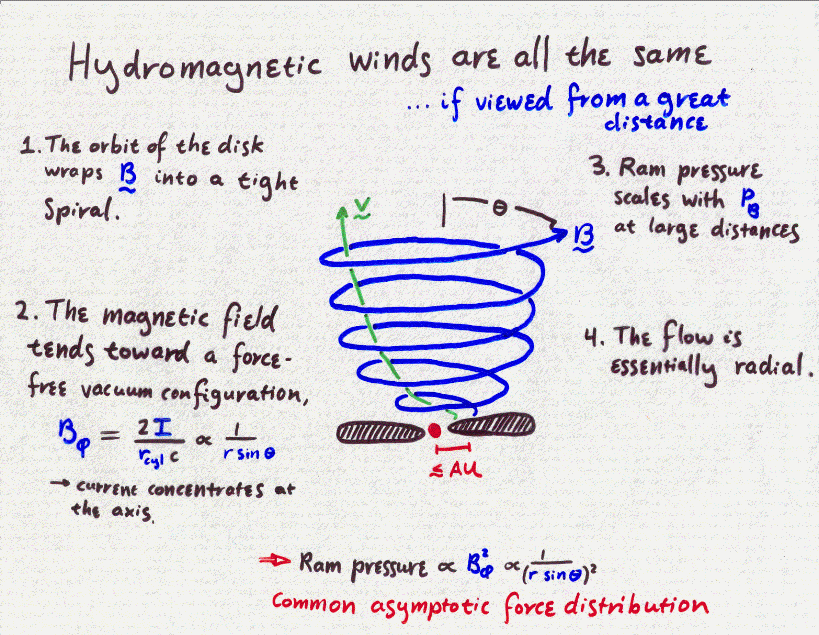 Hydromagnetic winds are all the same
... if viewed from a great
distance
1. The orbit of the disk
wraps B into a tight
Spiral.
2. The magnetic field
tends toward a force-
free vacuum configuration,
Bφ = 2I / r_cyl c ∝ 1 / r sin θ
→ current concentrates at
the axis.
V
θ
B
≲ AU
3. Ram pressure
scales with P_B
at large distances
4. The flow is
essentially radial.
⇒ Ram pressure ∝ Bφ² ∝ 1 / (r sin θ)²
Common asymptotic force distribution